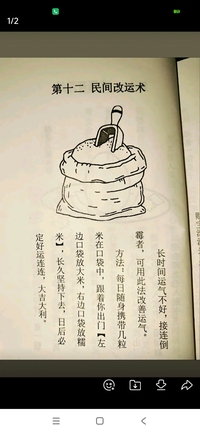 1/2
第十二 民间改运术
长时间运气不好，接连倒
霉者，可用此法改善运气。
方法：每日随身携带几粒
米在口袋中，跟着你出门【左
边口袋放大米，右边口袋放糯
米】，长久坚持下去，日后必
定好运连连，大吉大利。